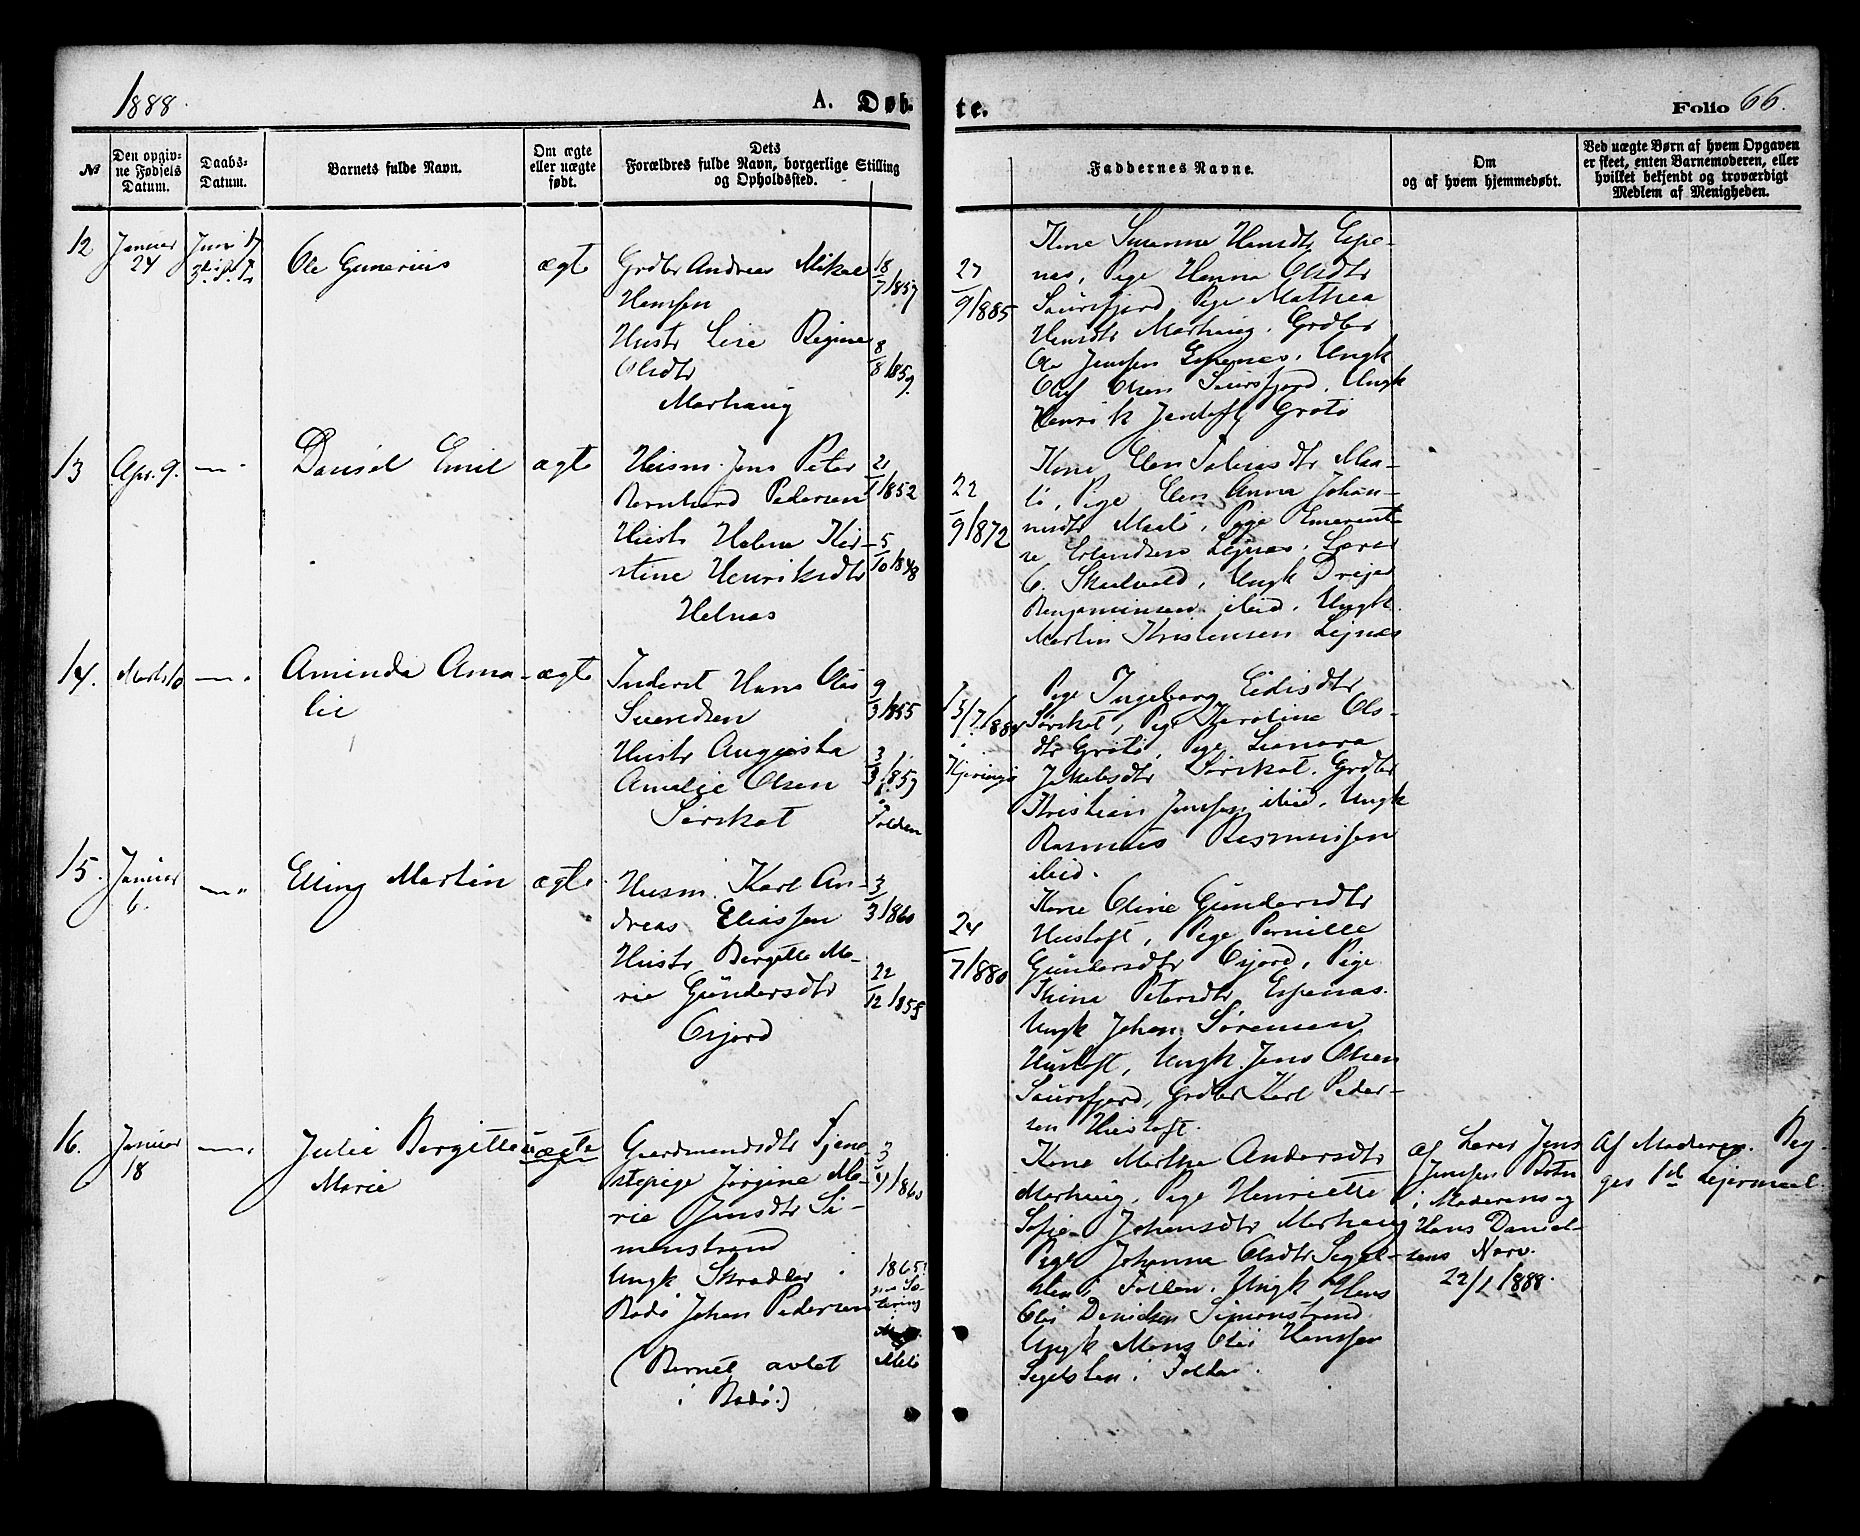 1888.
A. Døb-
te.
Folio 66.
№
Den opgiv-
ne Fødsels
Datum.
Daabs-
Datum.
Barnets fulde Navn.
Om ægte
eller uægte
født.
Dets
Forældres fulde Navn, borgerlige Stilling
og Opholdssted.
Faddernes Navne.
Om
og af hvem hjemmedøbt.
Ved uægte Børn af hvem Opgaven
er skeet, enten Barnemoderen, eller
hvilket bekjendt og troværdigt
Medlem af Menigheden.
12
Januar
24
Juni 17
Ole Gunerius
ægte
Grdbr Andreas Mikal
Hanssen
Hustr Lise Regine
Olsdtr
Marhaug
18/7 1857
8/8 1859.
27/9 1885
Kone Susanna Hansdtr Espe-
nes, Pige Hanna Olsdtr
Saursfjord Pige Mathea
Hansdtr Marhaug. Grdbr
Ole Jenssen Espenes. Ungk
Oluf Olsen Saursfjord. Ungk
Henrik Jentoft Grøtø
13
Apr. 9.
—"
Daniel Emil
ægte
Husm. Jens Peter
Bernhard Pedersen
Hustr Helene Kir-
stine Henriksdtr
Helnæs
21/1 1852
5/10 1848
22/9 1872
Kone Elen Tobiasdtr Maa-
lø, Pige Elen Anna Johan-
nesdtr Maalø, Pige Emerent-
se Erlendsen Lejnes. Lærer
O. Skadvold, Ungk Drejer
Benjaminsen ibid. Ungk.
Martin Kristensen Lejnes
14.
Marts 10
—".
Aminda Ama-
lie
ægte
Inderst Hans Olai
Svendsen
Hustr Augusta
Amalie Olsen
Sørskot
9/3 1855
3/3 1859
i Folden
13/7 1884
i
Kjeringø
Pige Ingeborg Eidisdtr
Sørskot, Pige Karoline Ols-
dtr Grøtø, Pige Leonora
Jakobsdtr Sørskot. Grdbr
Kristian Jenssen ibid. Ungk
Rasmus Rasmussen
ibid.
15.
Januar
6.
—".
Elling Martin
ægte.
Husm. Karl An-
dreas Eliassen
Hustr Bergitte Ma-
rie Gundersdtr
Osjord
3/3 1860
22/12 1858
24/7 1880
Kone Oline Gundersdtr
Hustoft, Pige Pernille
Gundersdtr Osjord, Pige
Trine Petersdtr Espenæs.
Ungk Johan Sørensen
Hustoft, Ungk. Jens Olsen
Saursfjord, Grdbr Karl Peder-
sen Hustoft.
16.
Januar
18
—".
Julie Bergitte
Marie
uægte
Gaardmandsdtr Tjene-
stepige Jørgine Ma-
rie Jensdtr Si-
monstrand
Ungk Skrædder i
Bodø Johan Pedersen
(Barnet avlet
i Bodø.)
1865?
Kone Marthe Andersdtr
Marhaug, Pige Henriette
Sofie Johansdtr Marhaug
Pige Johanna Olsdtr Segel-
sten i Folden. Ungk Hans
Olai Danielsen Simonstrand
Ungk Mons Olai Hanssen
Segelsten i Folden.
af Lærer Jens
Jenssen Botn
i Moderens og
Hans Daniel-
sens Nærv.
22/1 1888.
Af Moderen. Beg-
ges 1ste Lejermaal.